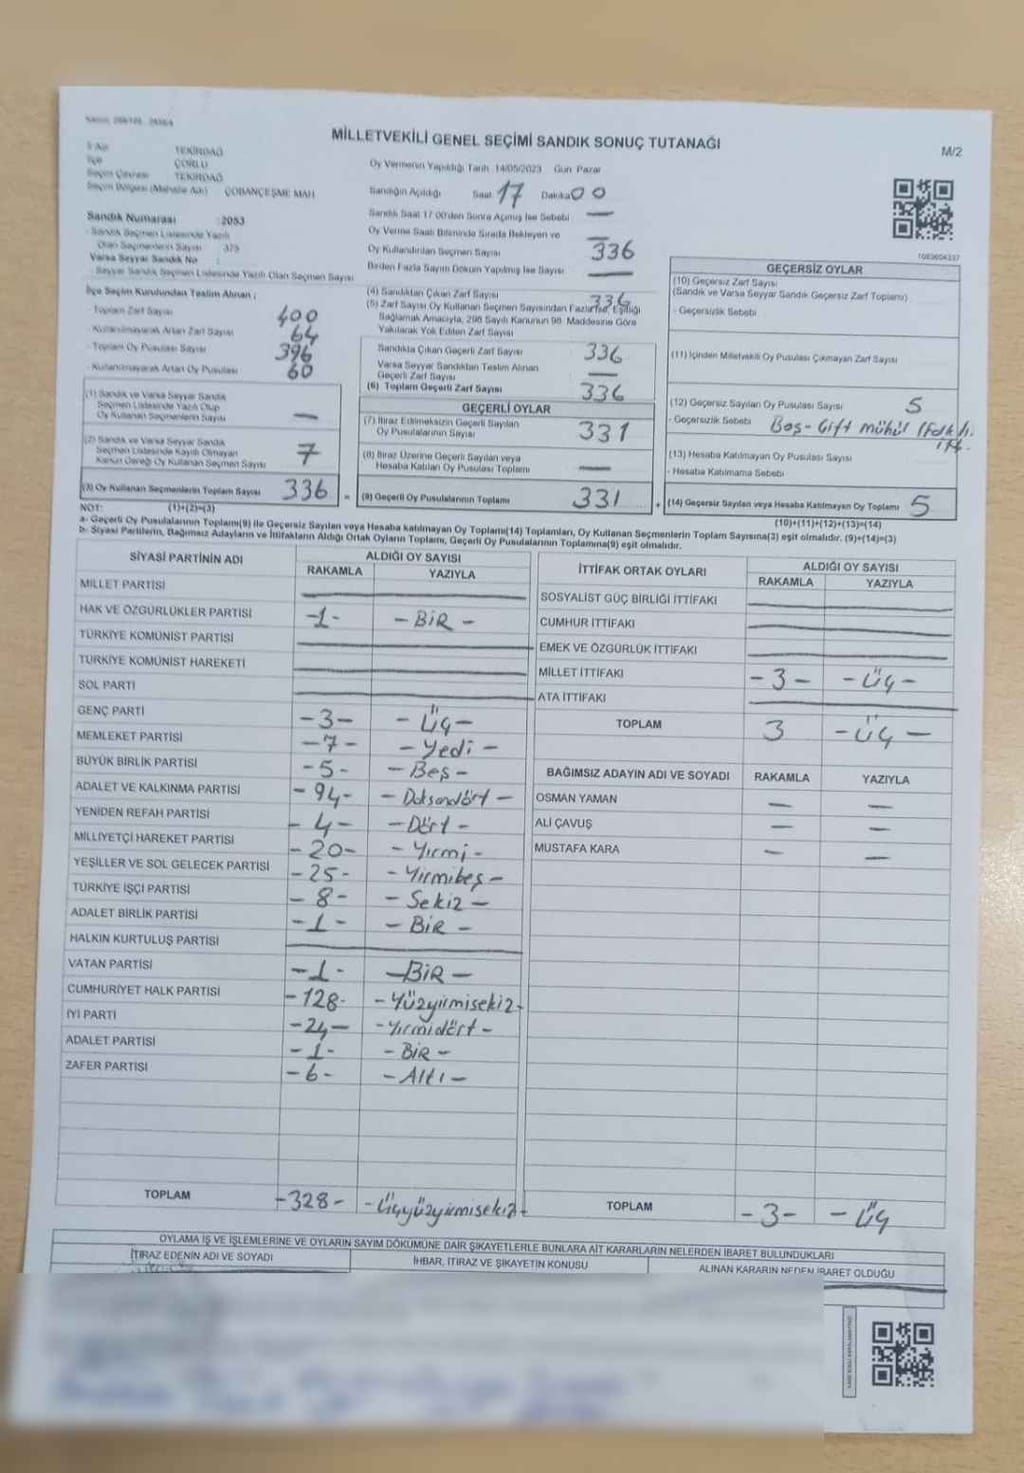 MİLLETVEKİLİ GENEL SEÇİMİ SANDIK SONUÇ TUTANAĞI
M/2
İlçe
Seçim Çevresi
TEKİRDAĞ
ÇORLU
TEKİRDAĞ
Seçim Bölgesi (Mahalle Adı) : ÇOBANÇEŞME MAH
Sandık Numarası : 2053
- Sandık Seçmen Listesinde Yazılı
Olan Seçmenlerin Sayısı : 375
Varsa Seyyar Sandık No :
- Seyyar Sandık Seçmen Listesinde Yazılı Olan Seçmen Sayısı
İlçe Seçim Kurulundan Teslim Alınan :
- Toplam Zarf Sayısı 400
- Kullanılmayarak Artan Zarf Sayısı 64
- Toplam Oy Pusulası Sayısı 396
- Kullanılmayarak Artan Oy Pusulası 60
(1) Sandık ve Varsa Seyyar Sandık
Seçmen Listesinde Yazılı Olup
Oy Kullanan Seçmenlerin Sayısı —
(2) Sandık ve Varsa Seyyar Sandık
Seçmen Listesinde Kayıtlı Olmayan
Kanun Gereği Oy Kullanan Seçmen Sayısı 7
(3) Oy Kullanan Seçmenlerin Toplam Sayısı 336
Oy Vermenin Yapıldığı Tarih : 14/05/2023 Gün : Pazar
Sandığın Açıldığı Saat : 17 Dakika : 00
Sandık Saat 17:00'den Sonra Açılmış İse Sebebi —
Oy Verme Saati Bitiminde Sırada Bekleyen ve —
Oy Kullandırılan Seçmen Sayısı 336
Birden Fazla Sayım Döküm Yapılmış İse Sayısı —
(4) Sandıktan Çıkan Zarf Sayısı 336
(5) Zarf Sayısı Oy Kullanan Seçmen Sayısından Fazla İse, Eşitliği
Sağlamak Amacıyla, 298 Sayılı Kanunun 98. Maddesine Göre
Yakılarak Yok Edilen Zarf Sayısı
Sandıkta Çıkan Geçerli Zarf Sayısı 336
Varsa Seyyar Sandıktan Teslim Alınan
Geçerli Zarf Sayısı —
(6) Toplam Geçerli Zarf Sayısı 336
GEÇERLİ OYLAR
(7) İtiraz Edilmeksizin Geçerli Sayılan
Oy Pusulalarının Sayısı 331
(8) İtiraz Üzerine Geçerli Sayılan veya
Hesaba Katılan Oy Pusulası Toplamı —
= (9) Geçerli Oy Pusulalarının Toplamı 331
GEÇERSİZ OYLAR
(10) Geçersiz Zarf Sayısı
(Sandık ve Varsa Seyyar Sandık Geçersiz Zarf Toplamı)
- Geçersizlik Sebebi
(11) İçinden Milletvekili Oy Pusulası Çıkmayan Zarf Sayısı
(12) Geçersiz Sayılan Oy Pusulası Sayısı 5
- Geçersizlik Sebebi Boş - Çift mühür
(13) Hesaba Katılmayan Oy Pusulası Sayısı
- Hesaba Katılmama Sebebi
+ (14) Geçersiz Sayılan veya Hesaba Katılmayan Oy Toplamı 5
NOT: (1)+(2)=(3) (10)+(11)+(12)+(13)=(14)
a- Geçerli Oy Pusulalarının Toplamı(9) ile Geçersiz Sayılan veya Hesaba katılmayan Oy Toplamı(14) Toplamları, Oy Kullanan Seçmenlerin Toplam Sayısına(3) eşit olmalıdır. (9)+(14)=(3)
b- Siyasi Partilerin, Bağımsız Adayların ve İttifakların Aldığı Ortak Oyların Toplamı, Geçerli Oy Pusulalarının Toplamına(9) eşit olmalıdır.
SİYASİ PARTİNİN ADI ALDIĞI OY SAYISI
RAKAMLA YAZIYLA
MİLLET PARTİSİ
HAK VE ÖZGÜRLÜKLER PARTİSİ -1- - BİR -
TÜRKİYE KOMÜNİST PARTİSİ
TÜRKİYE KOMÜNİST HAREKETİ
SOL PARTİ
GENÇ PARTİ -3- - Üç -
MEMLEKET PARTİSİ -7- - Yedi -
BÜYÜK BİRLİK PARTİSİ -5- - Beş -
ADALET VE KALKINMA PARTİSİ -94- - Doksandört -
YENİDEN REFAH PARTİSİ -4- - Dört -
MİLLİYETÇİ HAREKET PARTİSİ -20- - Yirmi -
YEŞİLLER VE SOL GELECEK PARTİSİ -25- - Yirmibeş -
TÜRKİYE İŞÇİ PARTİSİ -8- - Sekiz -
ADALET BİRLİK PARTİSİ -1- - BİR -
HALKIN KURTULUŞ PARTİSİ
VATAN PARTİSİ -1- - BİR -
CUMHURİYET HALK PARTİSİ -128- - Yüzyirmisekiz -
İYİ PARTİ -24- - Yirmidört -
ADALET PARTİSİ -1- - BİR -
ZAFER PARTİSİ -6- - Altı -
TOPLAM -328- - Üçyüzyirmisekiz -
İTTİFAK ORTAK OYLARI ALDIĞI OY SAYISI
RAKAMLA YAZIYLA
SOSYALİST GÜÇ BİRLİĞİ İTTİFAKI
CUMHUR İTTİFAKI
EMEK VE ÖZGÜRLÜK İTTİFAKI
MİLLET İTTİFAKI -3- - Üç -
ATA İTTİFAKI
TOPLAM 3 - Üç -
BAĞIMSIZ ADAYIN ADI VE SOYADI RAKAMLA YAZIYLA
OSMAN YAMAN — —
ALİ ÇAVUŞ — —
MUSTAFA KARA — —
TOPLAM -3- - Üç
OYLAMA İŞ VE İŞLEMLERİNE VE OYLARIN SAYIM DÖKÜMÜNE DAİR ŞİKAYETLERLE BUNLARA AİT KARARLARIN NELERDEN İBARET BULUNDUKLARI
İTİRAZ EDENİN ADI VE SOYADI İHBAR, İTİRAZ VE ŞİKAYETİN KONUSU ALINAN KARARIN NEDEN İBARET OLDUĞU